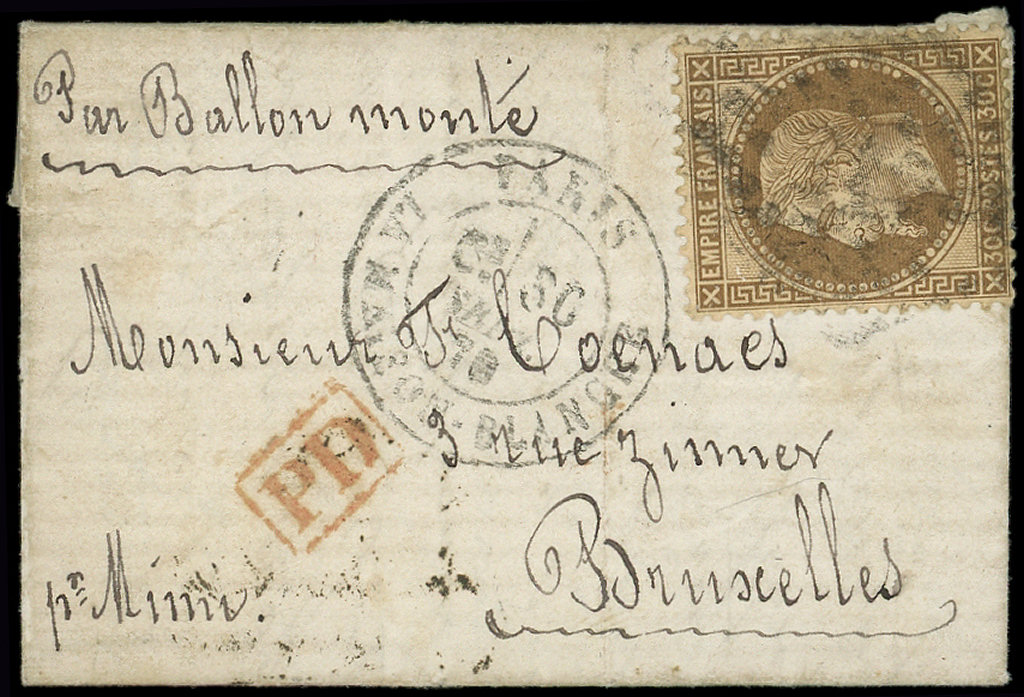 Par Ballon monté
EMPIRE FRANÇAIS
30C POSTES 30C
PARIS
BLANCHE
Monsieur Fr Coenaes
3 rue Zinner
PD
Bruxelles
pr Mimi.